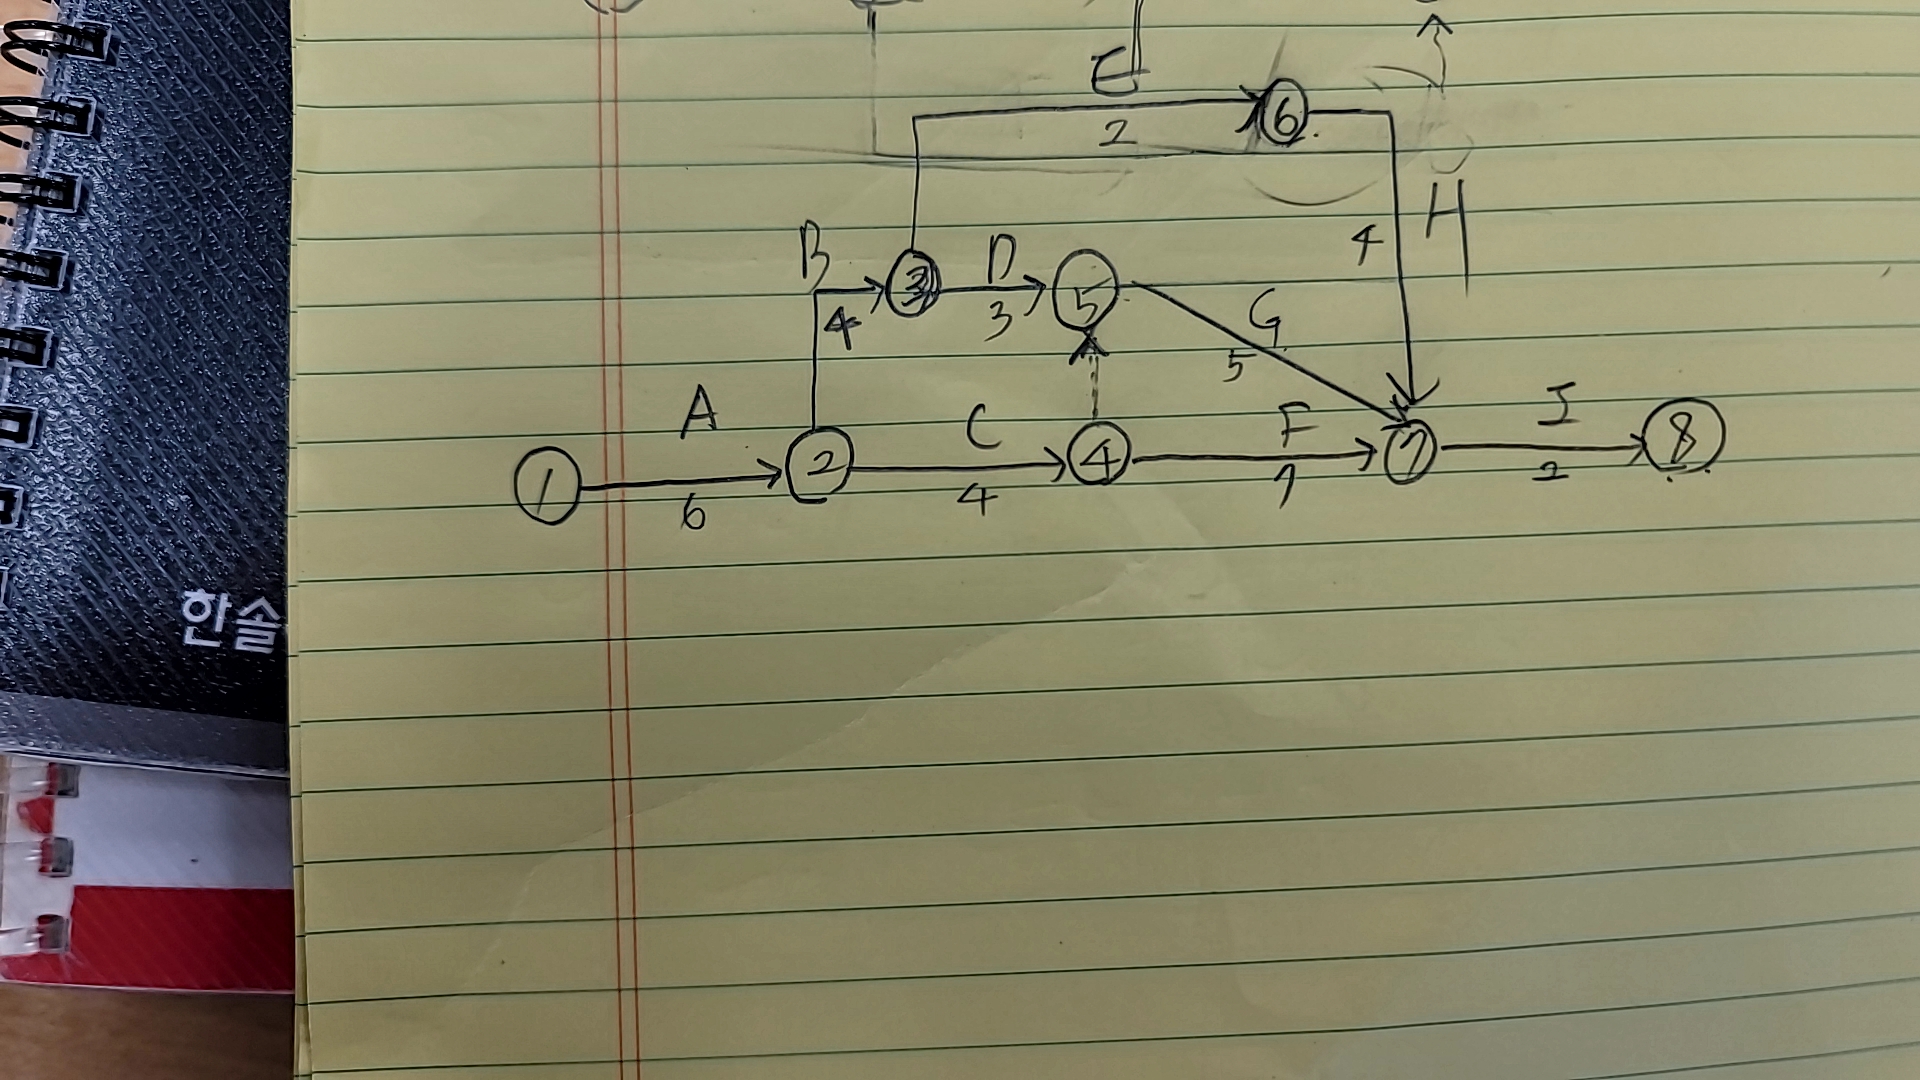 E
⑥
2
H
4
B
③
D
⑤
4
3
G
5
A
C
F
①
②
④
⑦
⑧
6
4
7
2
한솔